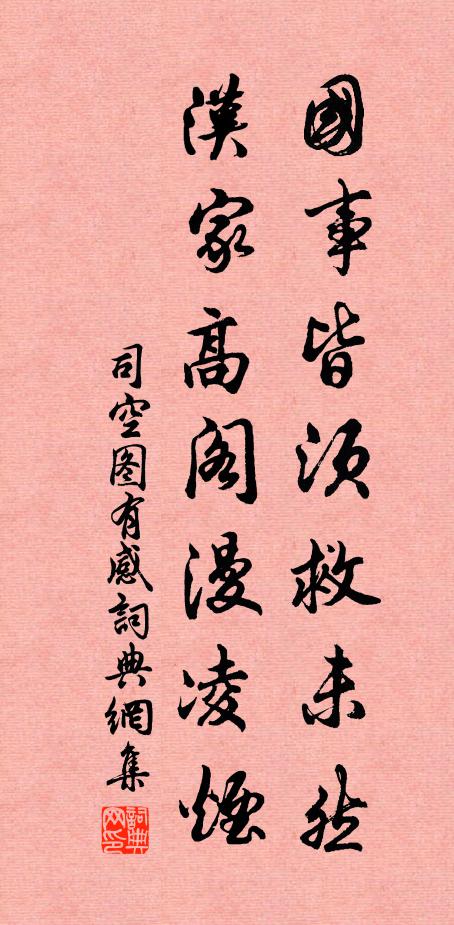 國事皆須救未然
漢家高閣漫凌煙
司空图有感詞典網集
詞典网印